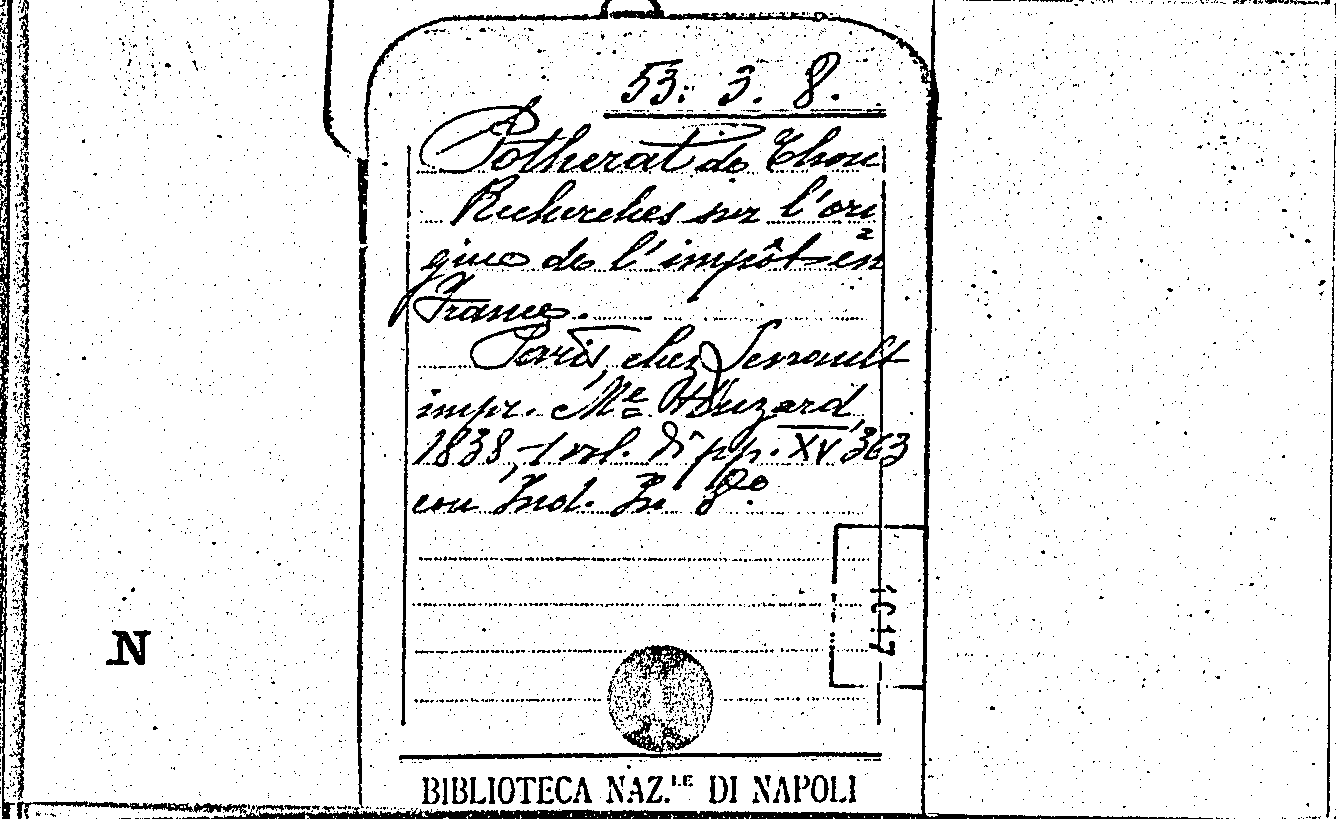 53. 3. 8.
Potherat de Thou
Recherches sur l'ori
gine de l'impôt en
France.
Paris, chez Levrault
impr. Me Huzard,
1838, 1 vol. di pp. XV 363
con Ind. In 8º.
1017
N
BIBLIOTECA NAZ.LE DI NAPOLI